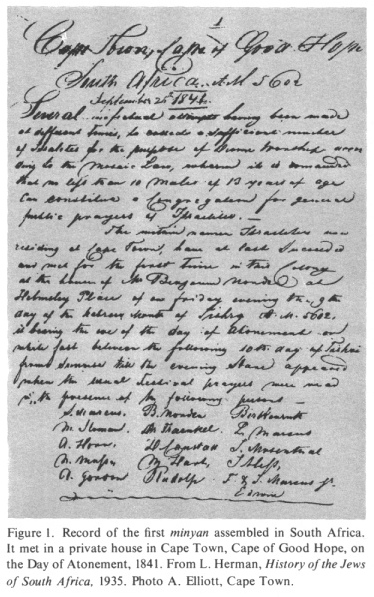 1
Cape Town, Cape of Good Hope
South Africa. A.M 5602
September 25th 1841.
Several ineffectual attempts having been made
at different times, to a sufficient number
of Israelites for the purpose of Divine Worship accor
ding to the Mosaic Law, wherein it is commanded
that no less than 10 Males of 13 years of age
Can constitute a Congregation for general
public prayers of Israelites. —
The within named Israelites now
residing at Cape Town, have at last Succeeded
and met for the first time in this Colony
at the house of Mr Benjamin Norden at
Helmsley Place on friday evening the 9th
day of the hebrew Month of Tishry A.M. 5602,
it being the eve of the day of Atonement on
which fast between the following 10th day of Tishri
from sunset till the evening Stars appeared
when the usual Festival prayers were read
in the presence of the following persons —
S. Marcus B. Norden
M. Sloman E. Marcus
A. Horn D. Capstat J. Mosenthal
M. Hart
A. Gordon Rudolph F. & S. Marcus Jr
Figure 1. Record of the first minyan assembled in South Africa.
It met in a private house in Cape Town, Cape of Good Hope, on
the Day of Atonement, 1841. From L. Herman, History of the Jews
of South Africa, 1935. Photo A. Elliott, Cape Town.